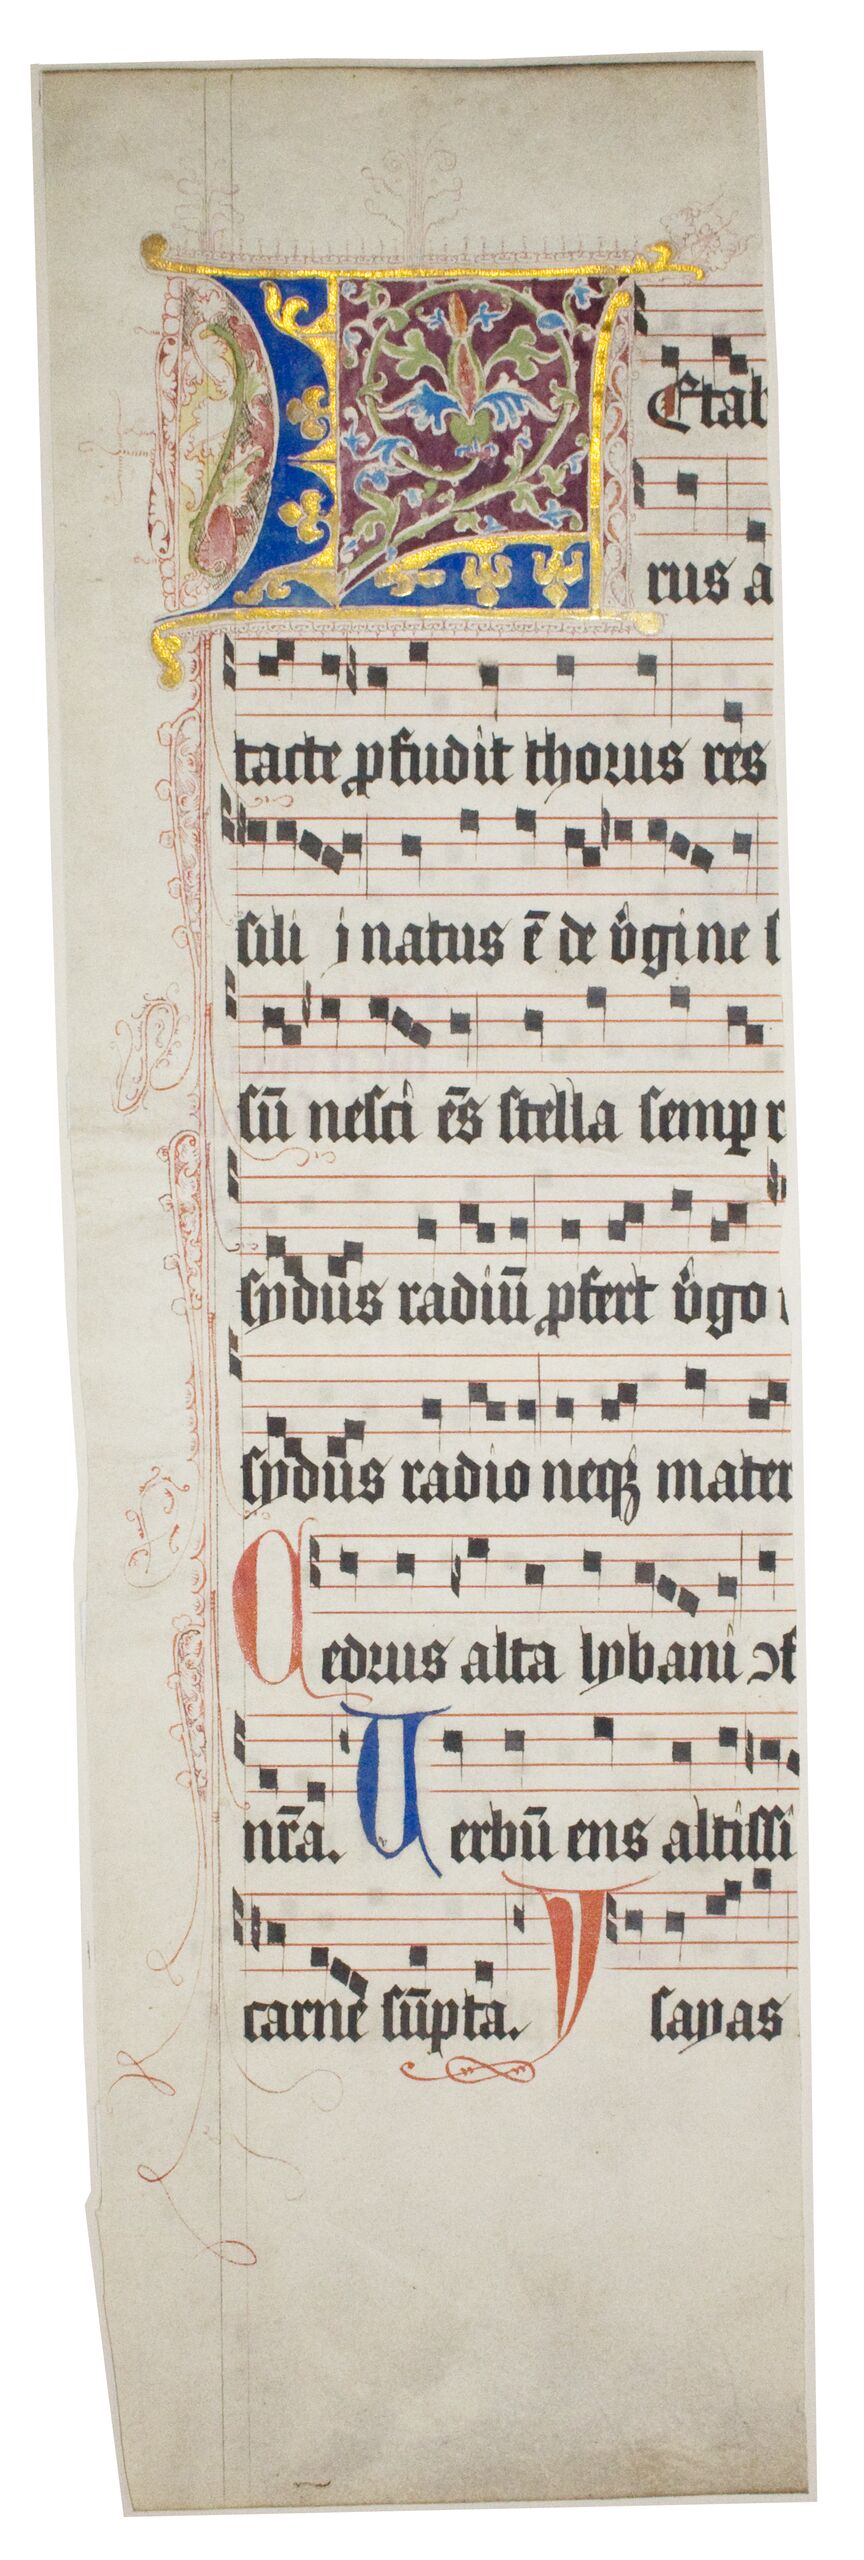 L Etab
rus a
tacte ꝓfudit thorus res
sili j natus ē de v̾gine s
sū nesci ēs stella semꝑ r
sydus radiū ꝓfert v̾go
sydus radio neqꝫ mater
Cedrus alta lybani ↄf
nr̄a. Verbū ens altissi
carne sūpta. Ysayas